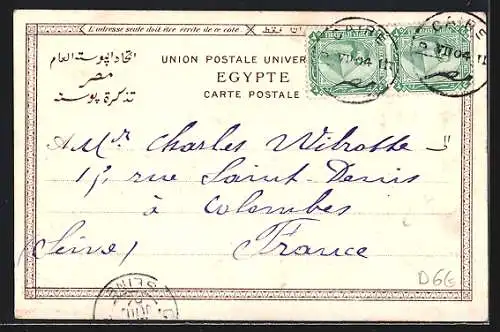 L'adresse seule doit être écrite de ce côté
اتحاد البوسته العام
مصر
تذكرة بوسته
UNION POSTALE UNIVER
EGYPTE
CARTE POSTALE
CAIRE
VII 04
CAIRE
VII 04
A Mr Charles Wilrotte
15, rue Saint-Denis
à Colombes
(Seine) France
SEINE
D66